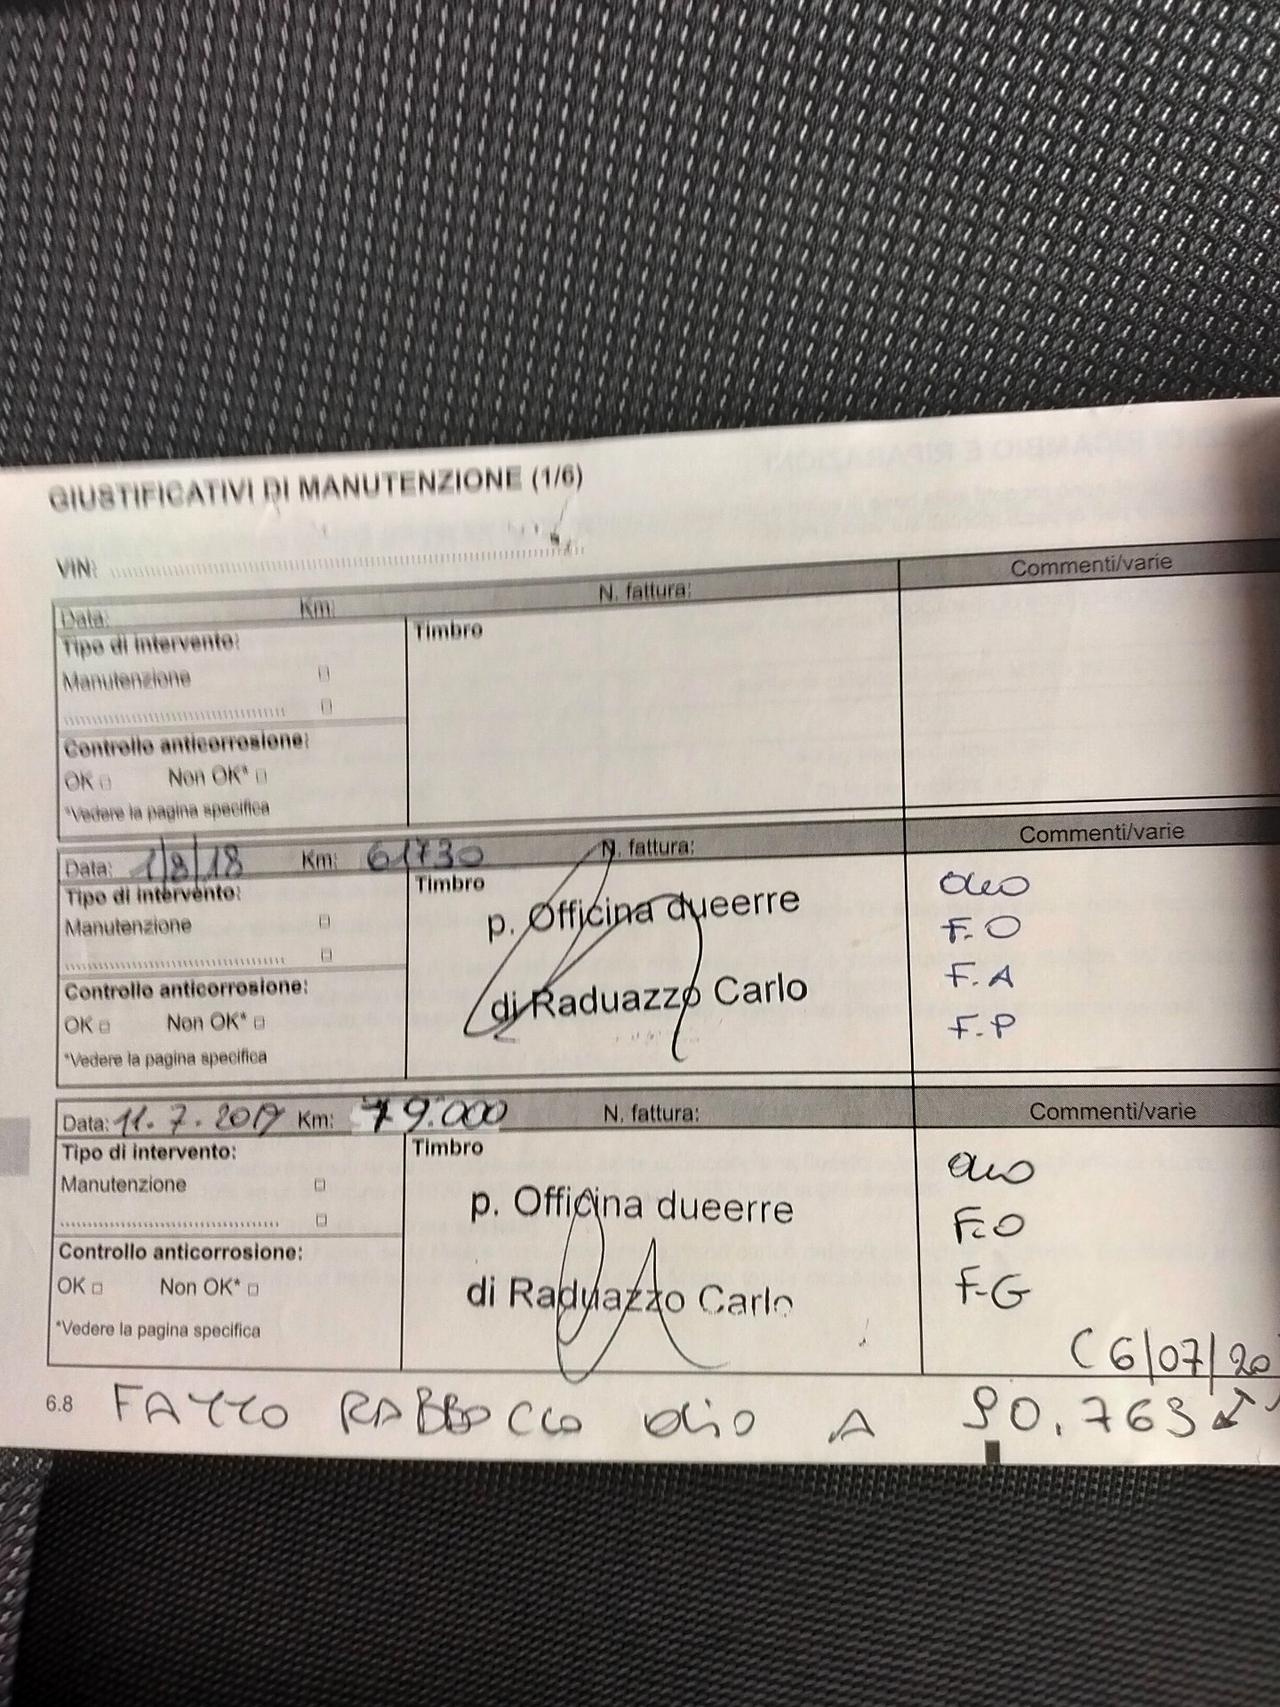 GIUSTIFICATIVI DI MANUTENZIONE (1/6)
VIN:
Data: Km: N. fattura: Commenti/varie
Tipo di intervento: Timbro
Manutenzione
Controllo anticorrosione:
OK Non OK*
*Vedere la pagina specifica
Data: 1/8/18 Km: 61730 N. fattura: Commenti/varie
Tipo di intervento: Timbro
Manutenzione
Controllo anticorrosione:
OK Non OK*
*Vedere la pagina specifica
p. Officina dueerre
di Raduazzo Carlo
OLIO
F.O
F.A
F.P
Data: 11.7.2019 Km: 79.000 N. fattura: Commenti/varie
Tipo di intervento: Timbro
Manutenzione
Controllo anticorrosione:
OK Non OK*
*Vedere la pagina specifica
p. Officina dueerre
di Raduazzo Carlo
OLIO
F.O
F-G
(6/07/20
6.8 FATTO RABBOCCO OLIO A 90.763